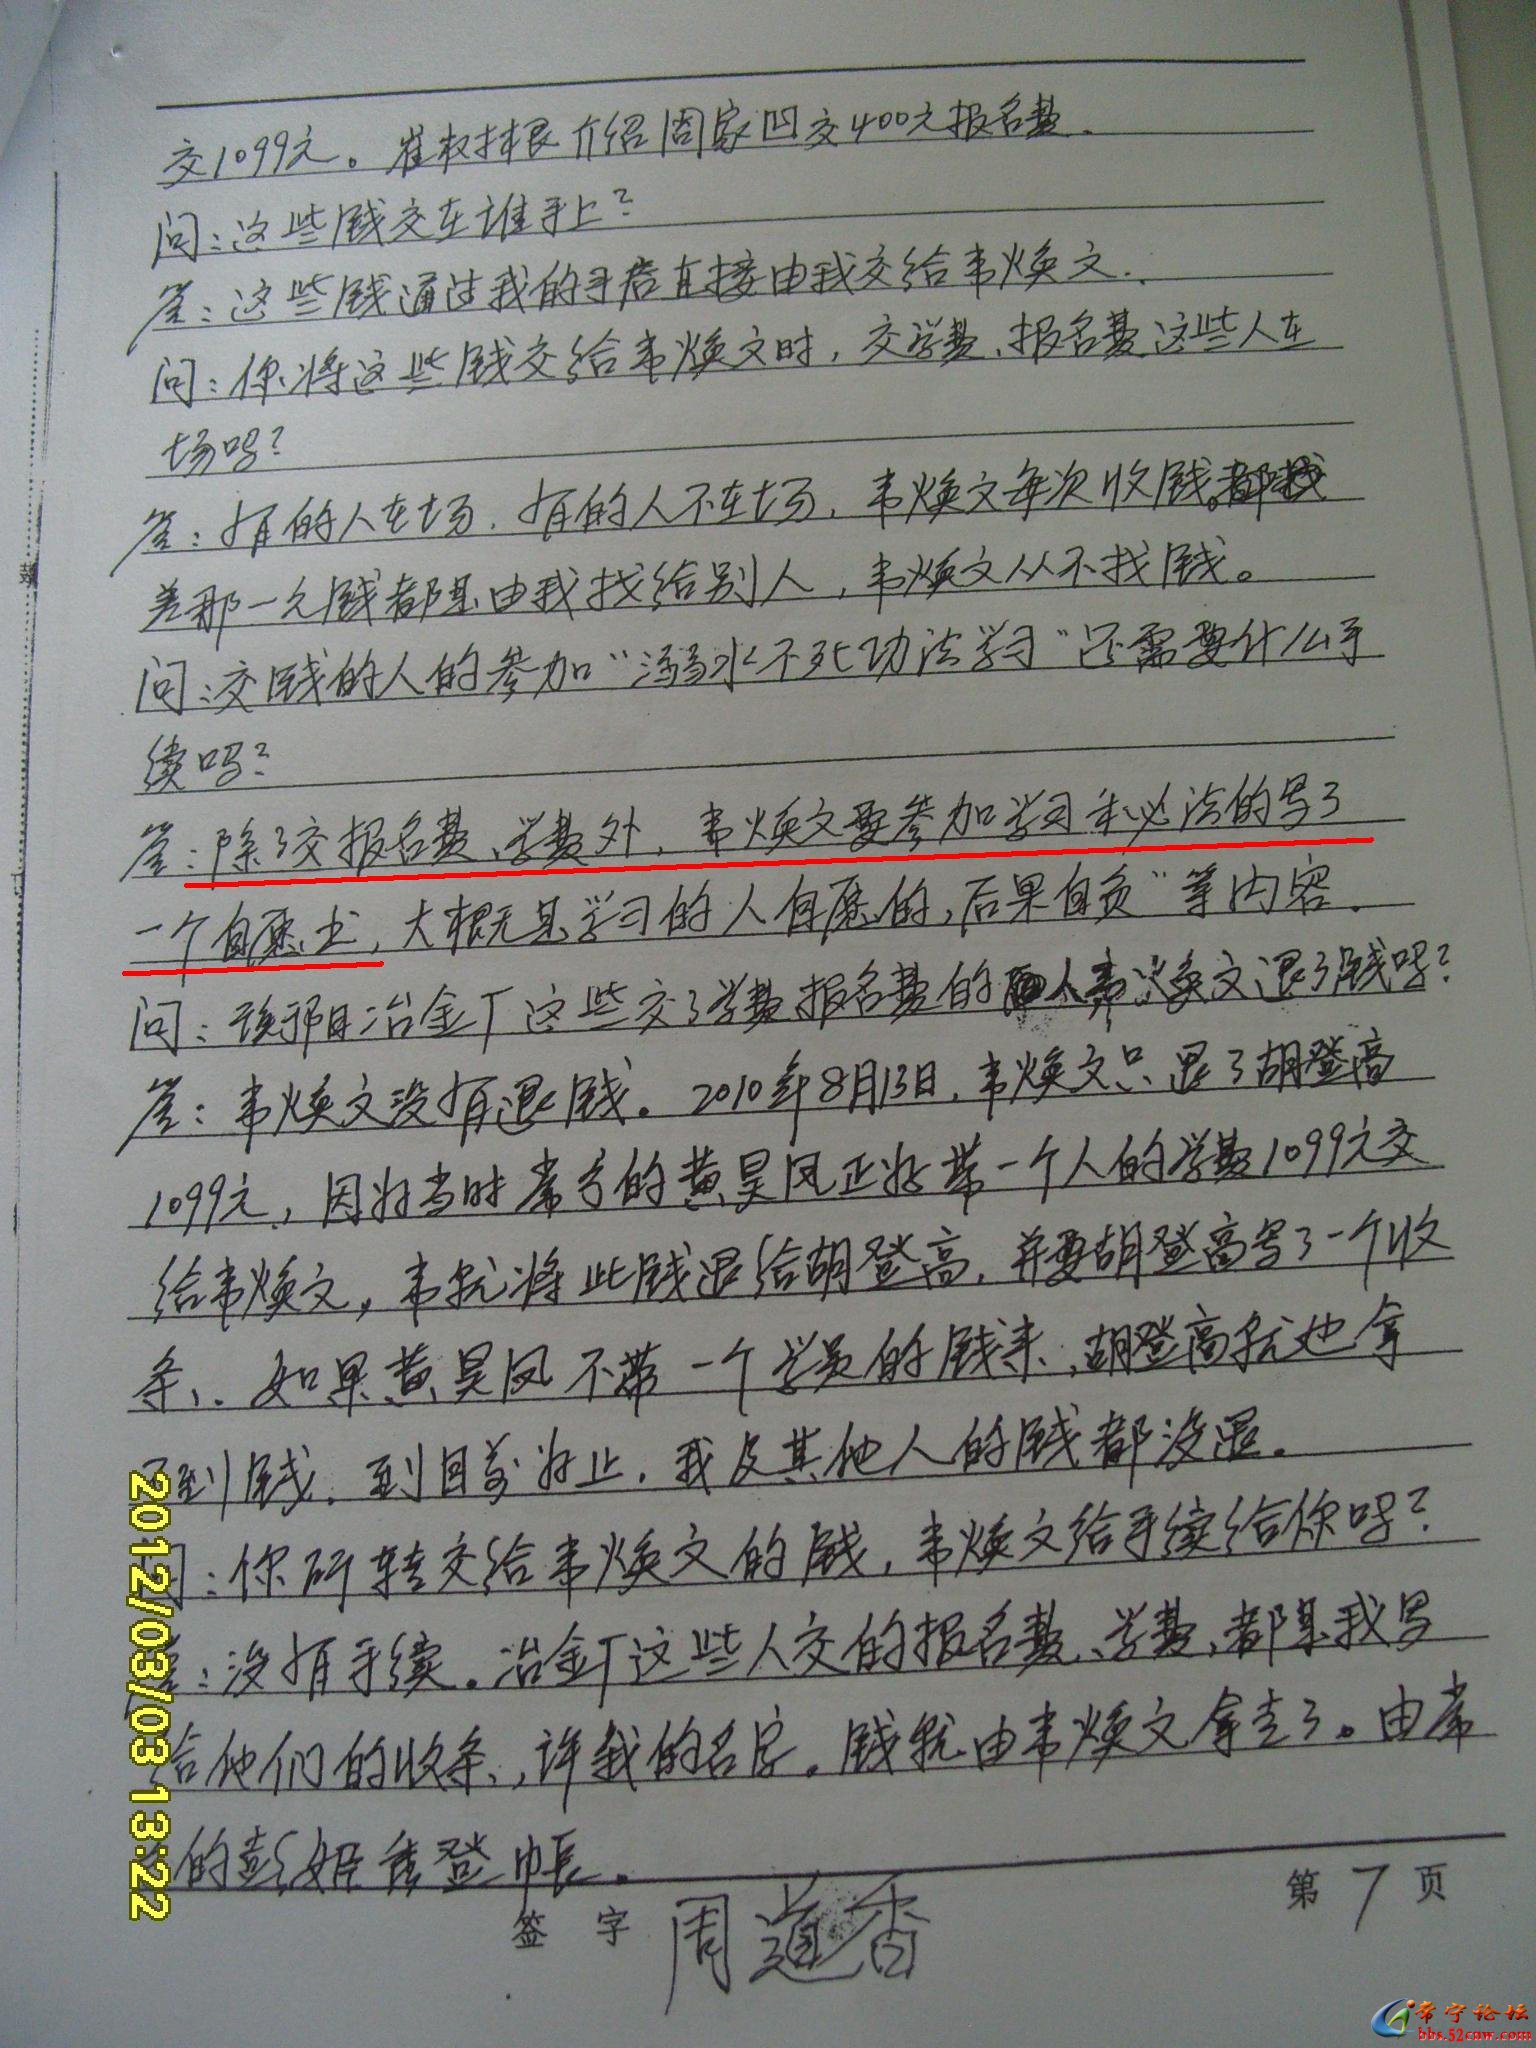 交1099元。崔权林根介绍周家凹交400元报名费.
问:这些钱交在谁手上?
答:这些钱通过我的手后直接由我交给韦焕文.
问:你将这些钱交给韦焕文时,交学费、报名费这些人在
场吗?
答:有的人在场.有的人不在场,韦焕文每次收钱。都找
差那一元钱都是由我找给别人,韦焕文从不找钱。
问:交钱的人的参加"溺水不死功法学习"还需要什么手
续吗?
答:除了交报名费、学费外,韦焕文要参加学习和必法的写了
一个自愿书,大概是学习的人自愿的,后果自负"等内容.
问:冶金厂这些交了学费报名费的人韦焕文退了钱吗?
答:韦焕文没有退钱.2010年8月13日,韦焕文只退了胡登高
1099元,因为当时常宁的黄昊凤正好带一个人的学费1099元交
给韦焕文,韦就将此钱退给胡登高,并要胡登高写了一个收
条、.如果黄昊凤不带一个学员的钱来,胡登高就也拿
不到钱.到目前为止.我及其他人的钱都没退.
问:你所转交给韦焕文的钱,韦焕文给手续给你吗?
答:没有手续.冶金厂这些人交的报名费、学费,都是我写
给他们的收条,,许我的名字.钱就由韦焕文拿走了。由常
的彭姬秀登帐.
签字 周道香
第7页
2012/03/03 13:22
常宁论坛
bbs.52cnw.com